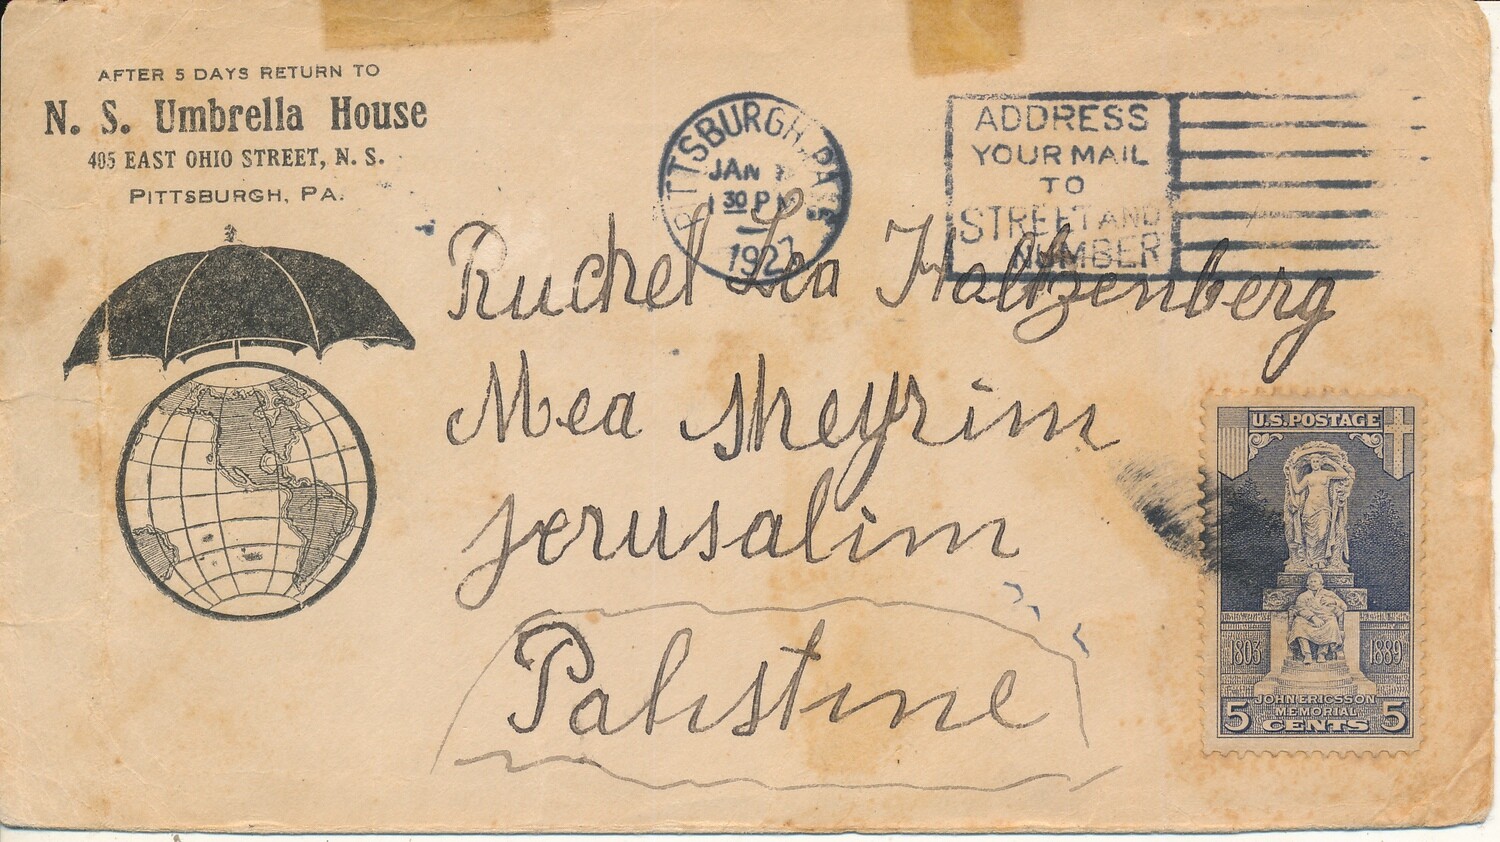 AFTER 5 DAYS RETURN TO
N. S. Umbrella House
405 EAST OHIO STREET, N. S.
PITTSBURGH, PA.
PITTSBURGH, PA
JAN
1 30 PM
1927
ADDRESS
YOUR MAIL
TO
STREET AND
NUMBER
Ruchel Lea Holtzenberg
Mea sheyrim
jerusalim
Palistine
U.S. POSTAGE
1803 1889
JOHN ERICSSON
MEMORIAL
5 CENTS 5